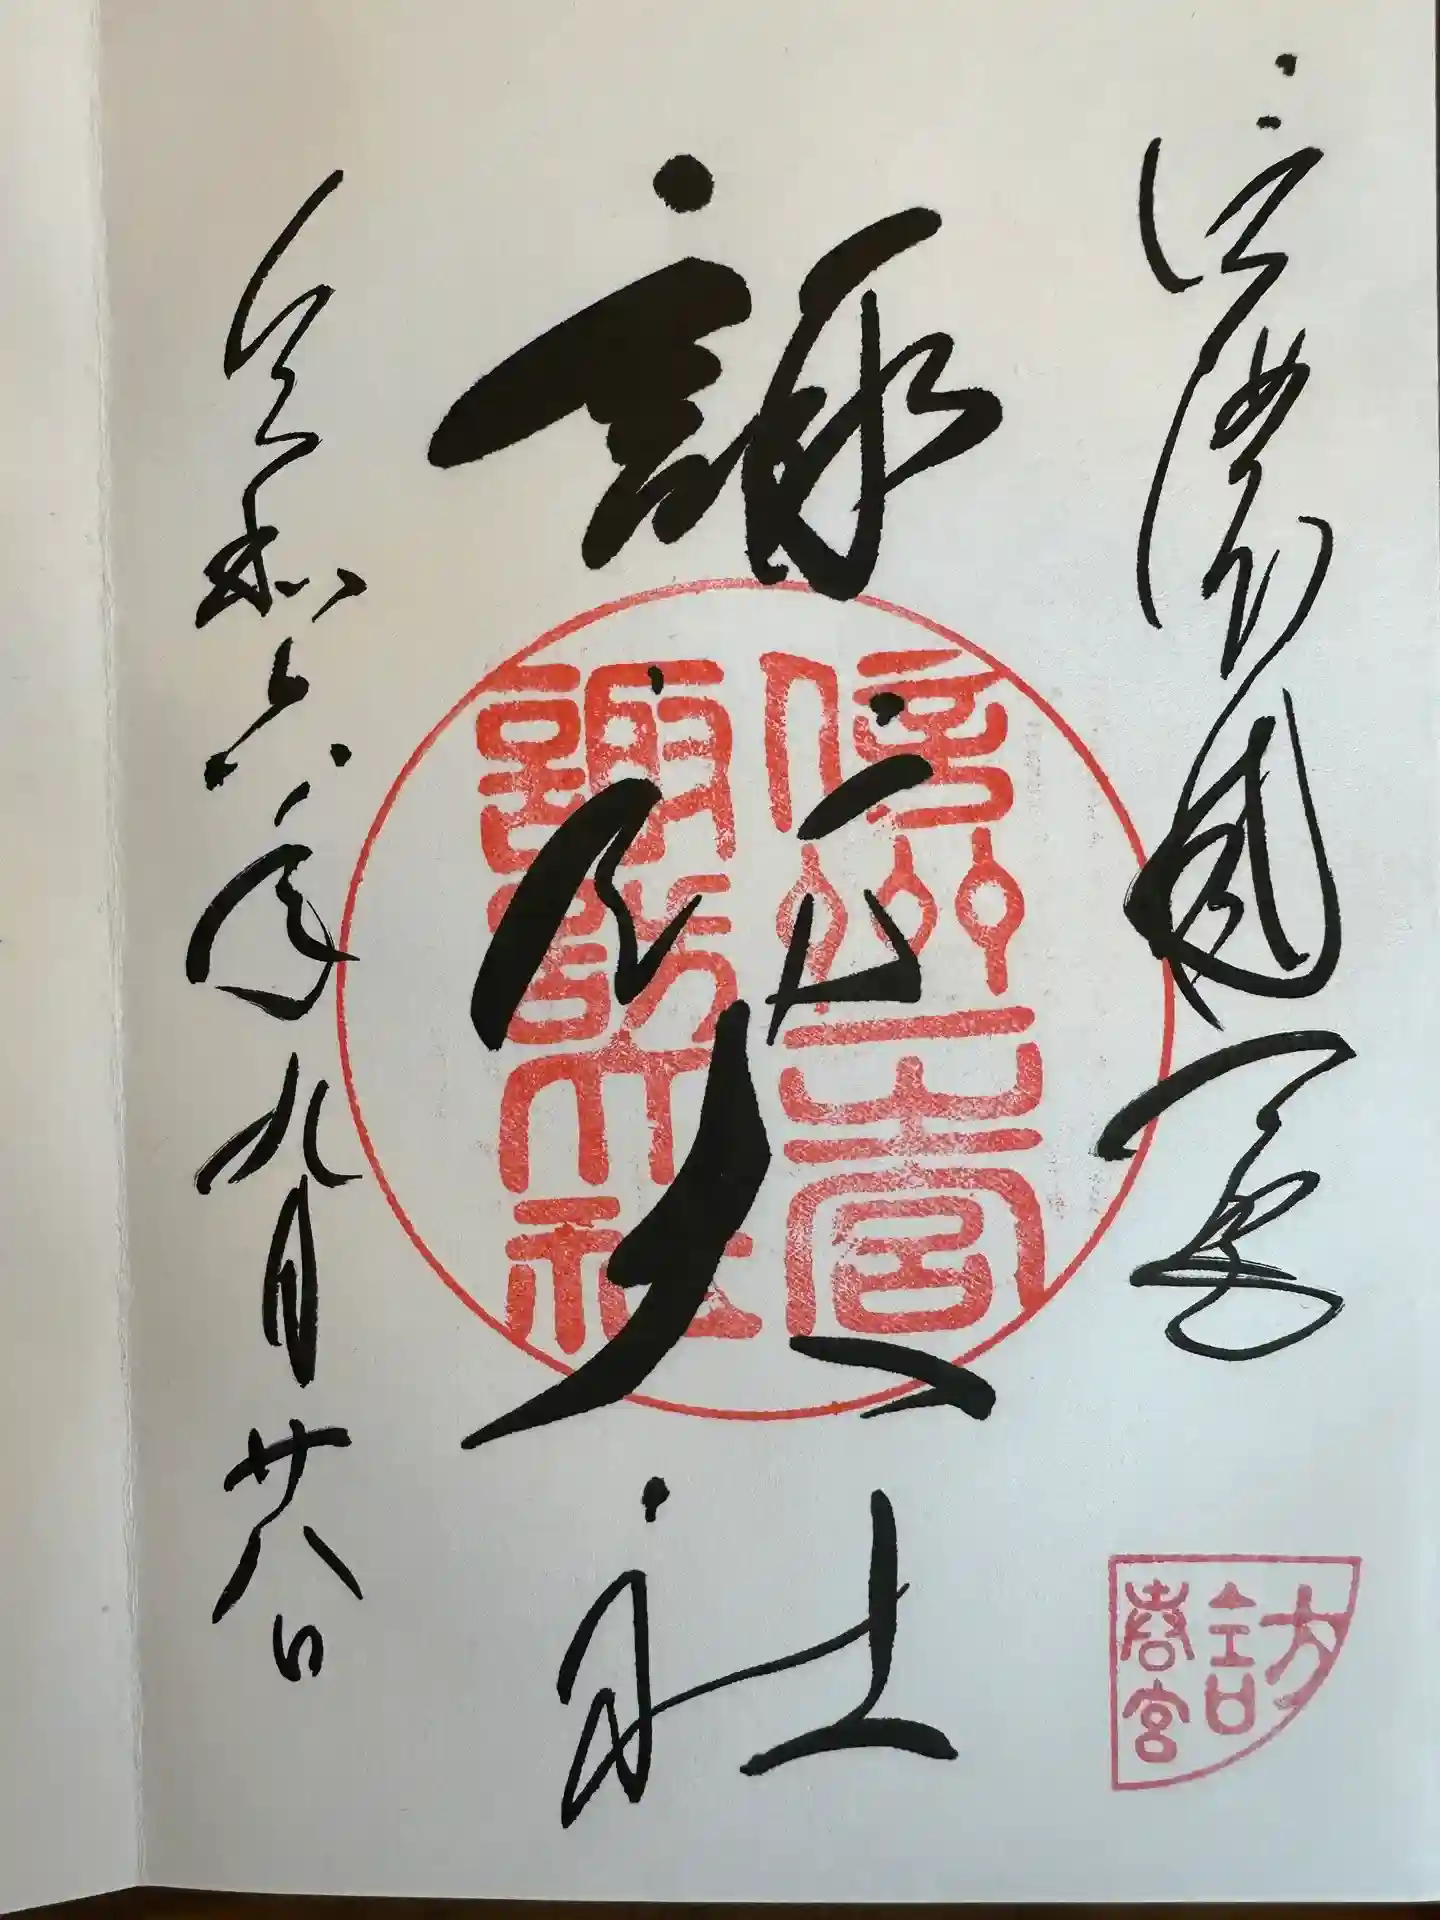 信濃國一宮
諏訪大社
令和六年九月廿八日
信州一之宮
諏訪大社
訪
春宮